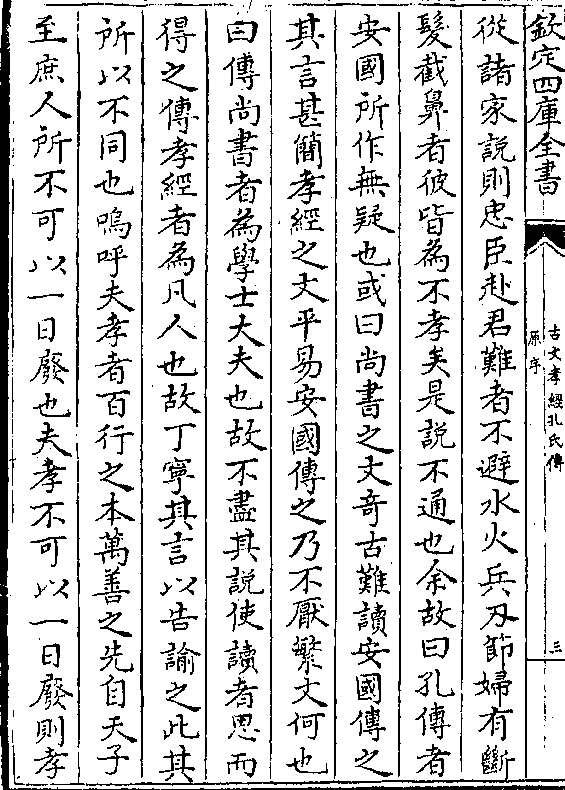 欽定四庫全書
古文孝經孔氏傳
原序
三
從諸家説則忠臣赴君難者不避水火兵刃節婦有斷
髮截鼻者彼皆為不孝矣是説不通也余故曰孔傳者
安國所作無疑也或曰尚書之文奇古難讀安國傳之
其言甚簡孝經之文平易安國傳之乃不厭繁文何也
曰傳尚書者為學士大夫也故不盡其説使讀者思而
得之傳孝經者為凡人也故丁寧其言以告諭之此其
所以不同也嗚呼夫孝者百行之本萬善之先自天子
至庶人所不可以一日廢也夫孝不可以一日廢則孝